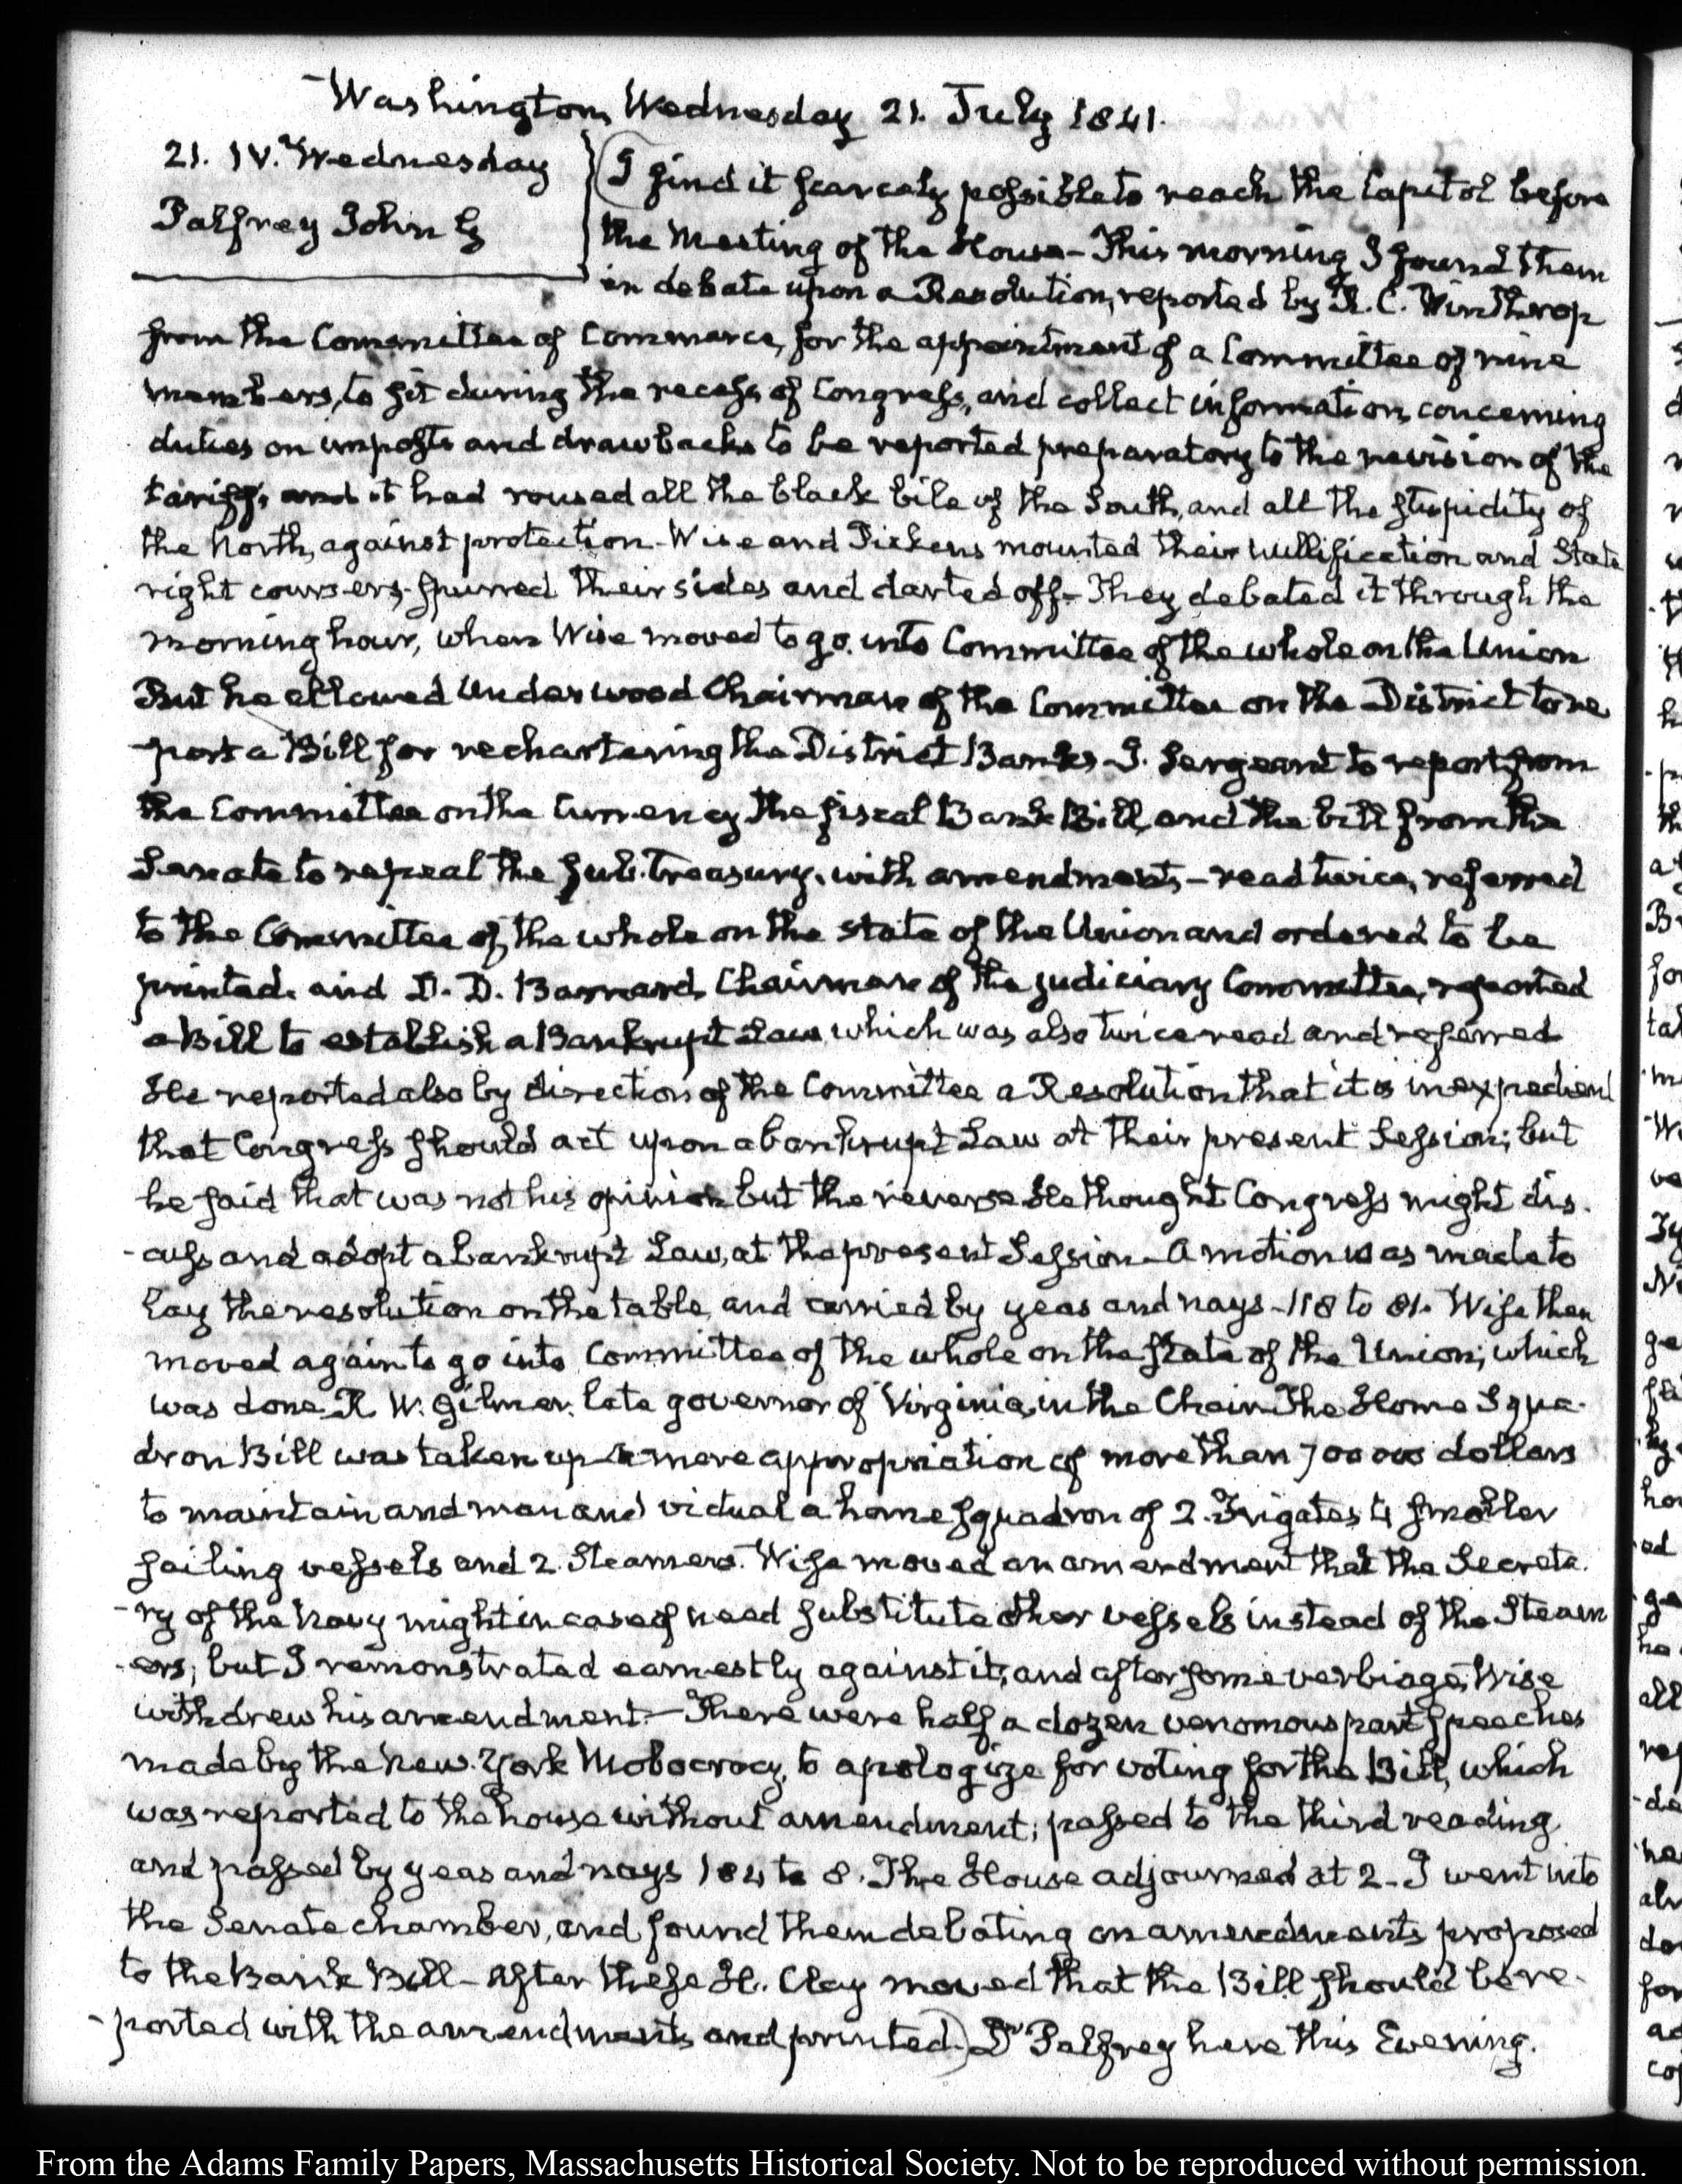 Washington Wednesday 21. July 1841.
21. IV. Wednesday
Palfrey John G
I find it scarcely possible to reach the Capitol before
the Meeting of the House - This morning I found them
in debate upon a Resolution, reported by R. C. Winthrop
from the Committee of Commerce, for the appointment of a Committee of nine
members, to sit during the recess of Congress, and collect information, concerning
duties on imposts and drawbacks to be reported preparatory to the revision of the
tariff, and it had roused all the black bile of the South, and all the stupidity of
the North, against protection - Wise and Pickens mounted their Nullification and State
right coursers, spurred their sides and darted off - They debated it through the
morning hour, when Wise moved to go into Committee of the whole on the Union
But he allowed Underwood Chairman of the Committee on the District to re
-port a Bill for rechartering the District Banks - J. Sergeant to report from
the Committee on the Currency the fiscal Bank Bill, and the bill from the
Senate to repeal the sub. treasury. with amendments, - read twice, referred
to the Committee of the whole on the state of the Union and ordered to be
printed. and D. D. Barnard, Chairman of the judiciary Committee, reported
a Bill to establish a Bankrupt Law, which was also twice read and referred
He reported also by direction of the Committee a Resolution that it is inexpedient
that Congress should act upon a bankrupt Law at their present Session; but
he said that was not his opinion but the reverse. He thought Congress might dis.
-cuss and adopt a bankrupt Law, at the present Session - A motion was made to
lay the resolution on the table, and carried by yeas and nays - 118 to 81. Wise then
moved again to go into Committee of the whole on the state of the Union; which
was done R. W. Gilmer, late governor of Virginia, in the Chair. The Home Squa-
dron Bill was taken up a mere appropriation of more than 700 000 dollars
to maintain and man and victual a home squadron of 2. Frigates, 4 smaller
sailing vessels and 2. Steamers. Wise moved an amendment that the Secreta.
-ry of the Navy might in case of need substitute other vessels instead of the Steam
-ers; but I remonstrated earnestly against it; and after some verbiage, Wise
withdrew his amendment - There were half a dozen venomous part speeches
made by the New-York Mobocracy, to apologize for voting for the Bill, which
was reported to the house without amendment; passed to the third reading
and passed by yeas and nays 184 to 8. The House adjourned at 2 - I went into
the Senate chamber, and found them debating on amendments proposed
to the Bank Bill - After these H. Clay moved that the Bill should be re-
-ported with the amendments and printed.) Dr Palfrey here this Evening.
From the Adams Family Papers, Massachusetts Historical Society. Not to be reproduced without permission.